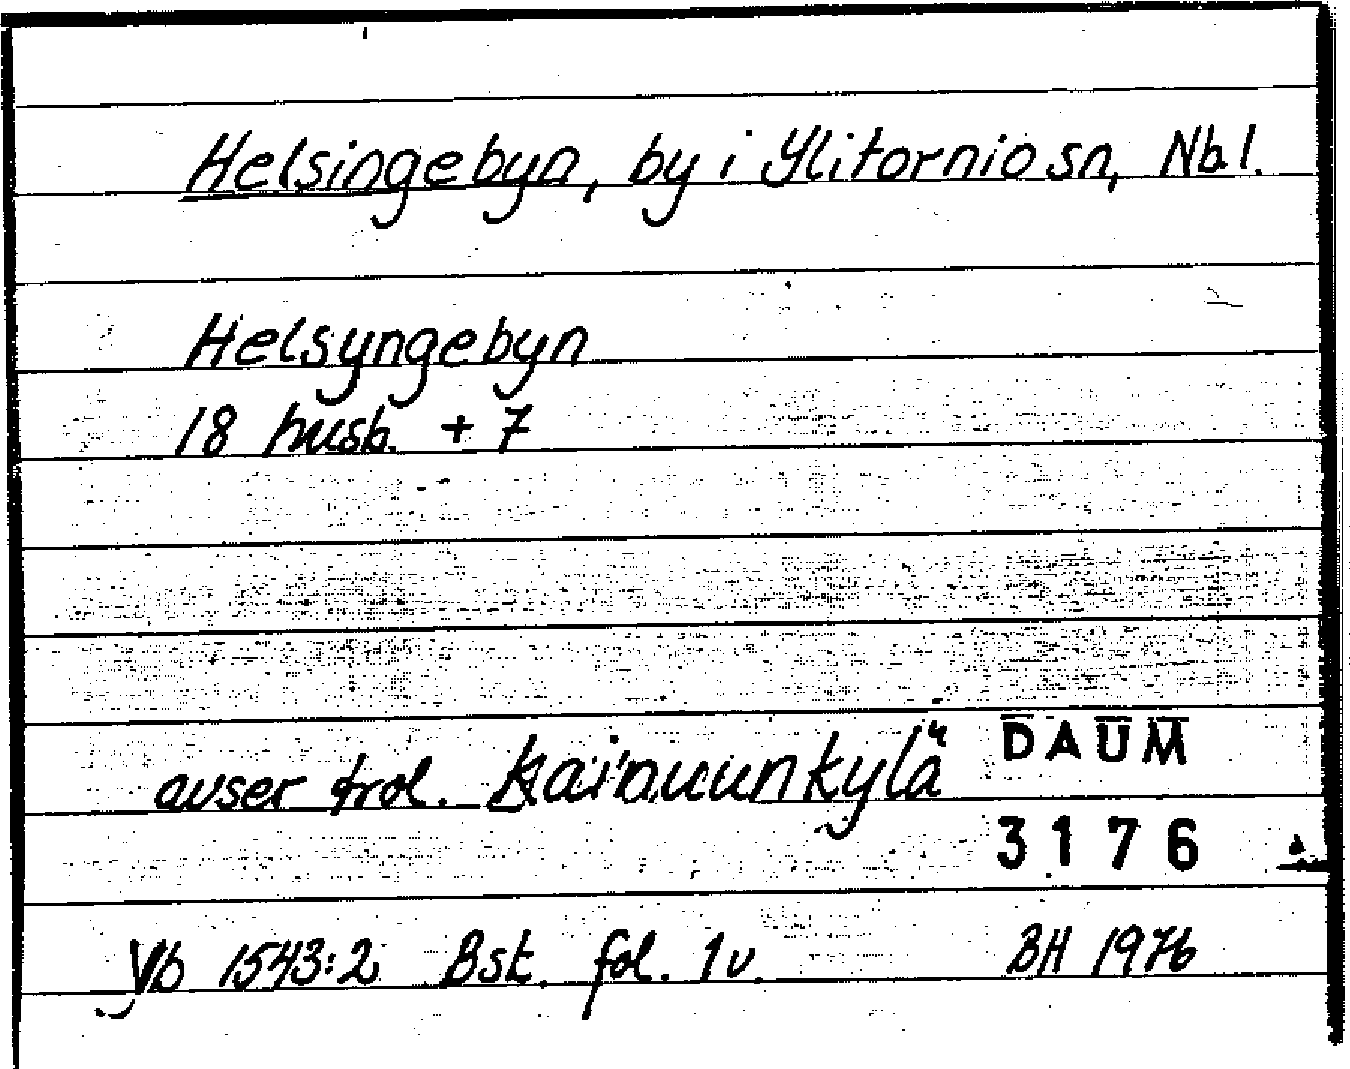 Helsingebyn, by i Ylitornio sn, Nb l.
Helsyngebyn
18 husb. + 7
avser trol. Kainuunkylä
DAUM
3176
Vb 1543:2 Bst. fol. 1v.
BH 1976